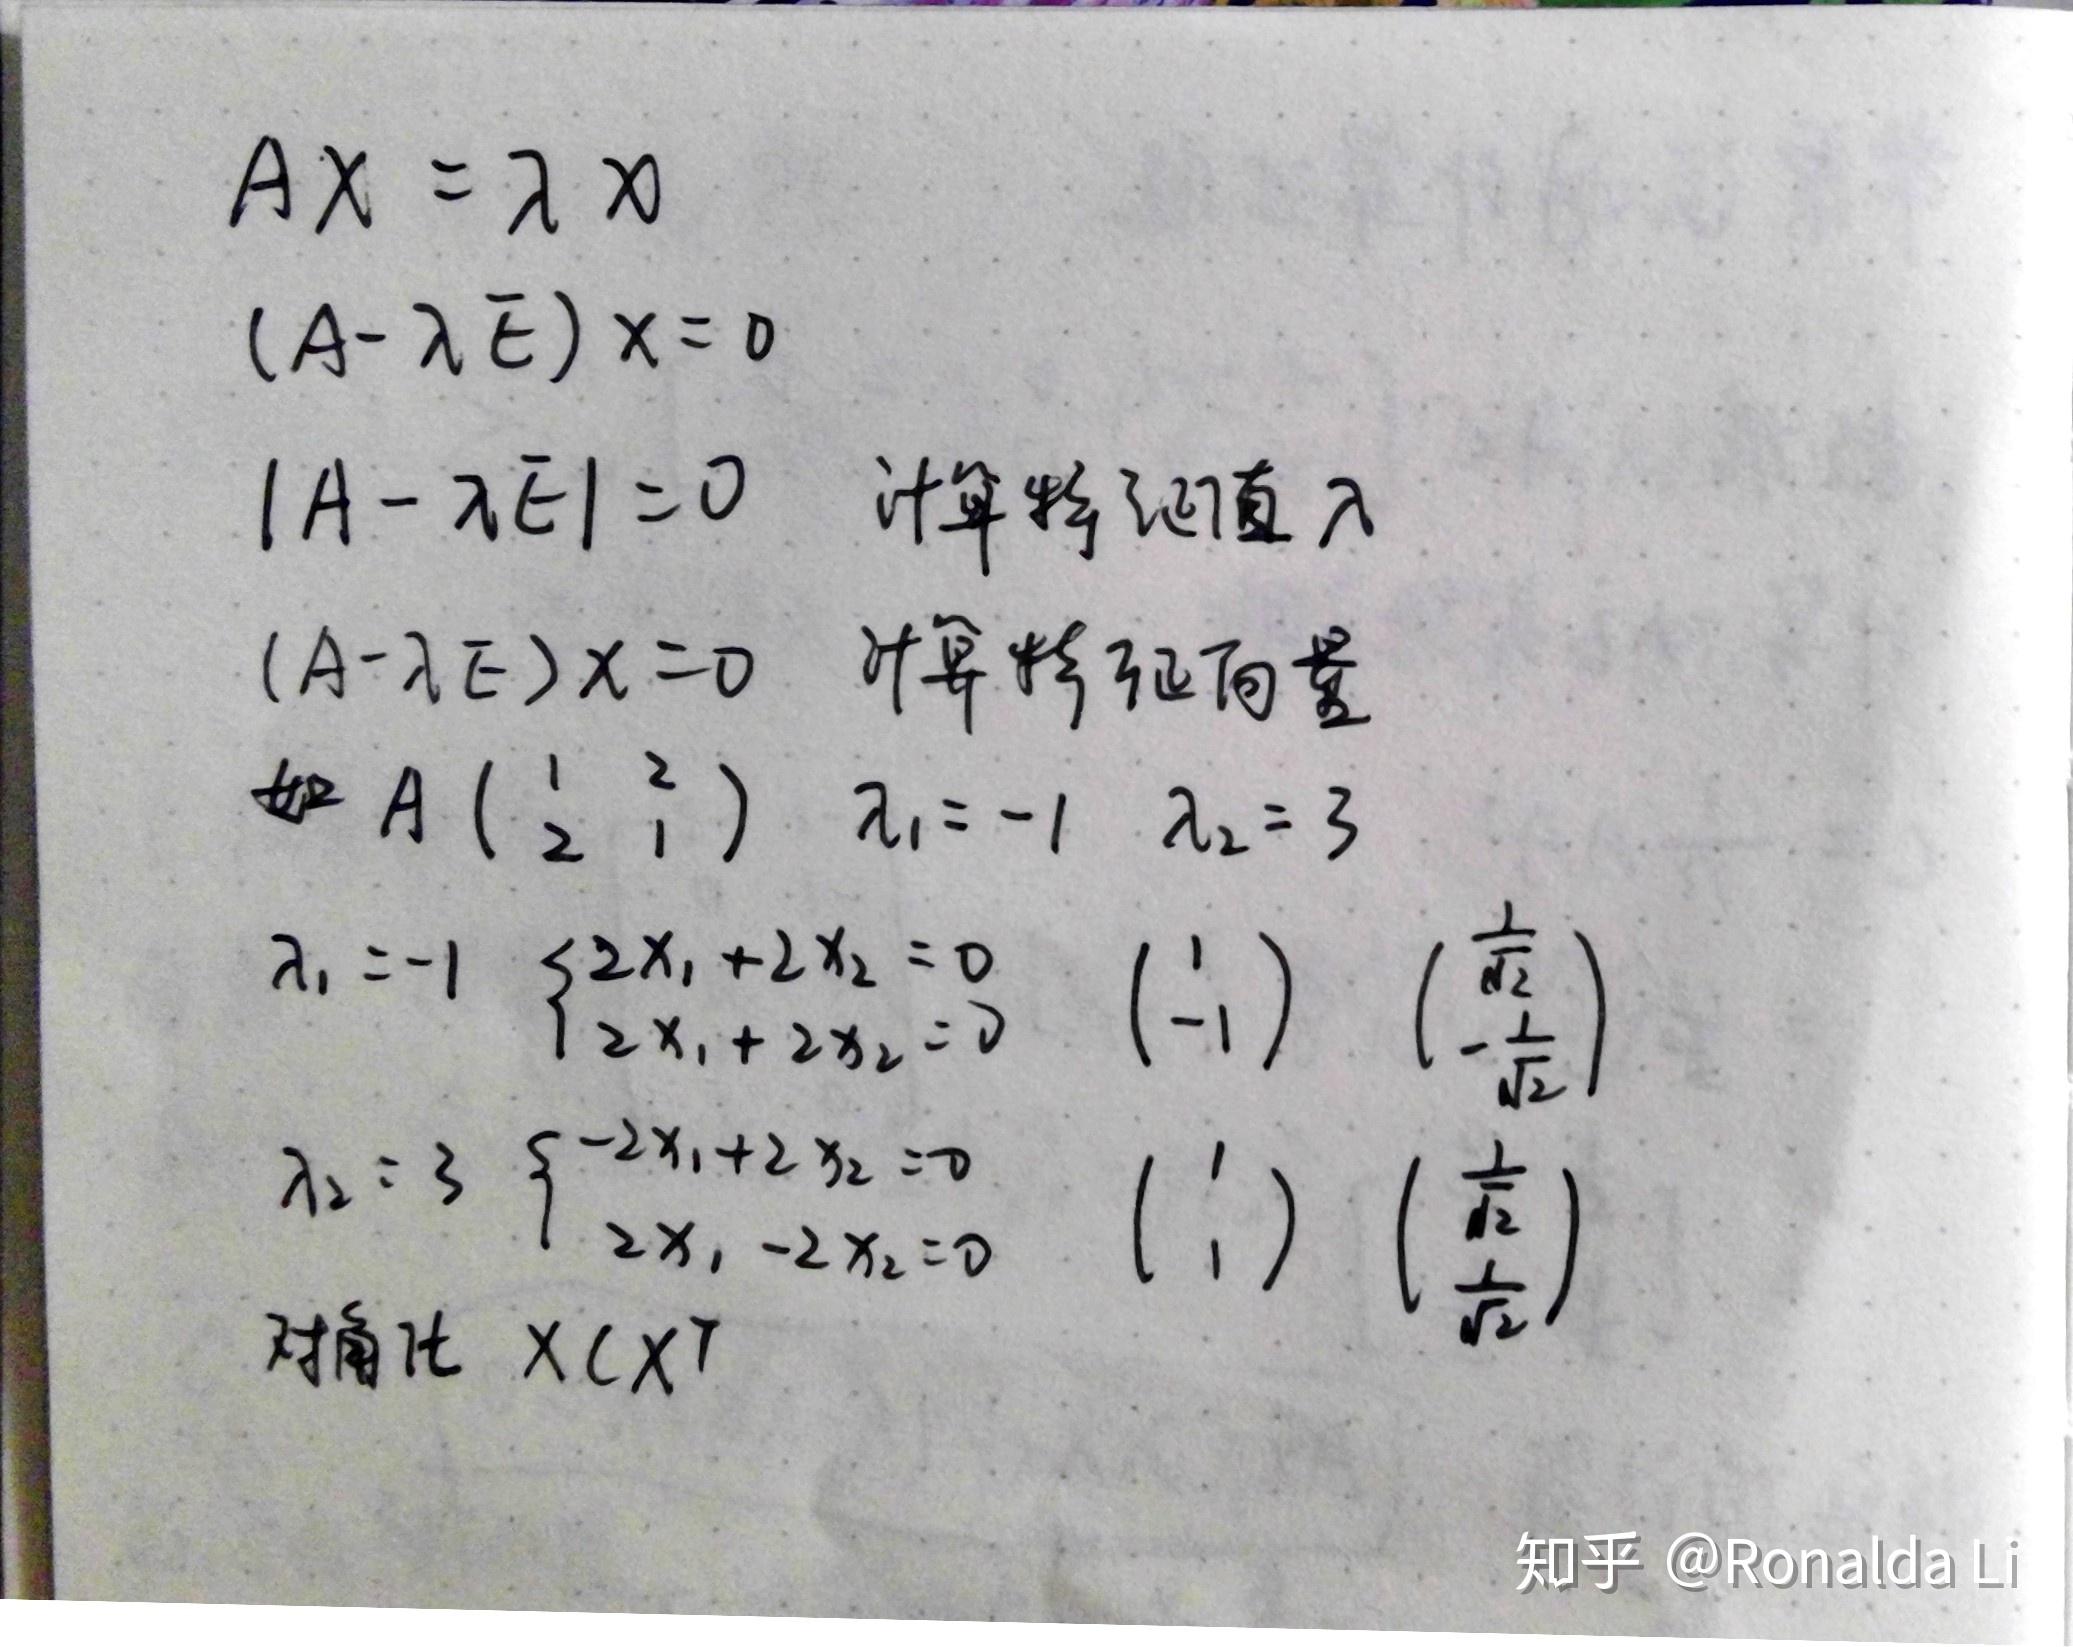 AX = λx
(A-λE)x=0
|A-λE|=0 计算特征值λ
(A-λE)x=0 计算特征向量
如 A(1 2
2 1) λ₁=-1 λ₂=3
λ₁=-1 {2x₁+2x₂=0
2x₁+2x₂=0 (1
-1) (1/√2
-1/√2)
λ₂=3 {-2x₁+2x₂=0
2x₁-2x₂=0 (1
1) (1/√2
1/√2)
对角化 XCXᵀ
知乎 @Ronalda Li